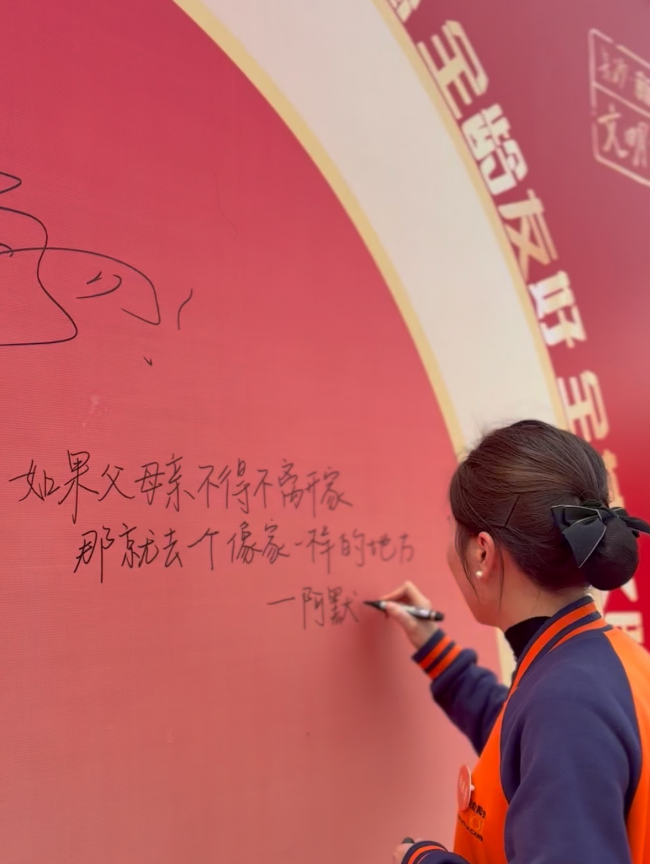 如果父母亲不得不离开家
那就去个像家一样的地方
一阿默
全龄友好 全
文明